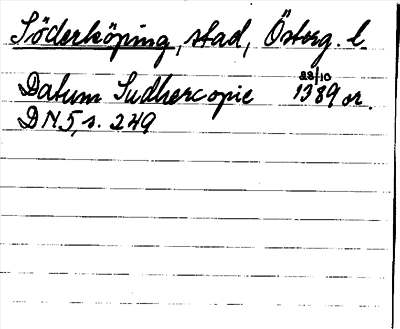 Söderköping, stad, Österg. l.
22/10
Datum Sudhercopie 1389 or.
DN 5, s. 249